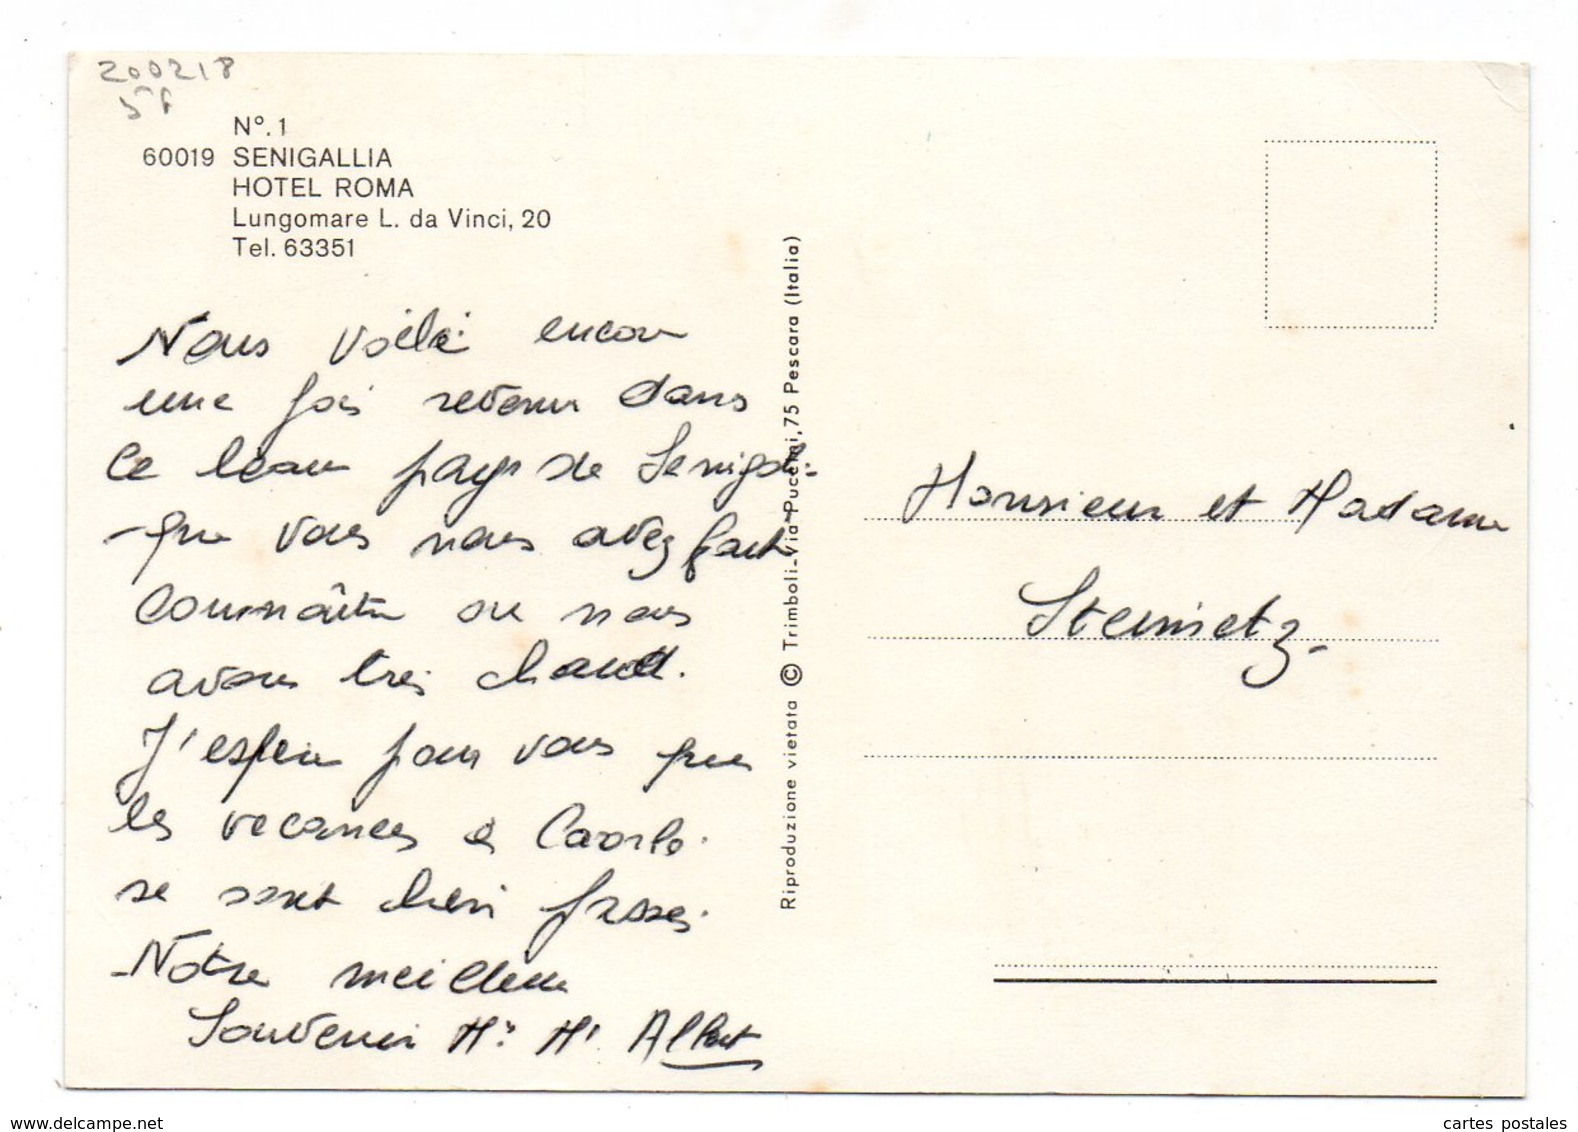 200218
5F
N°. 1
60019 SENIGALLIA
HOTEL ROMA
Lungomare L. da Vinci, 20
Tel. 63351
Nous voilà encore
une fois revenu dans
ce beau pays de Senigal-
que vous nous avez fait
connaître ou nous
avons très chaud.
J'espère pour vous que
les vacances à Caorle.
se sont bien passés.
Notre meilleur
Souvenir Mr Me Albert
Riproduzione vietata © Trimboli-Via Puccini, 75 Pescara (Italia)
Monsieur et Madame
Steinmetz.
www.delcampe.net
cartes postales